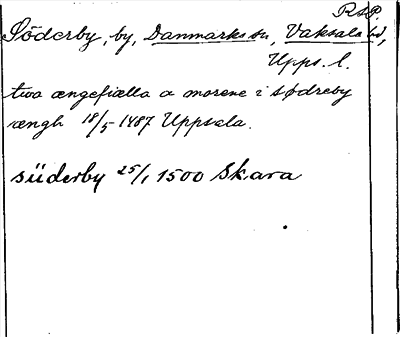 RSP.
Söderby, by, Danmarks sn, Vaksala hd,
Upps. l.
twa ængefiælla a morene i sødreby
ængh 18/5 1487 Uppsala.
süderby 25/1 1500 Skara